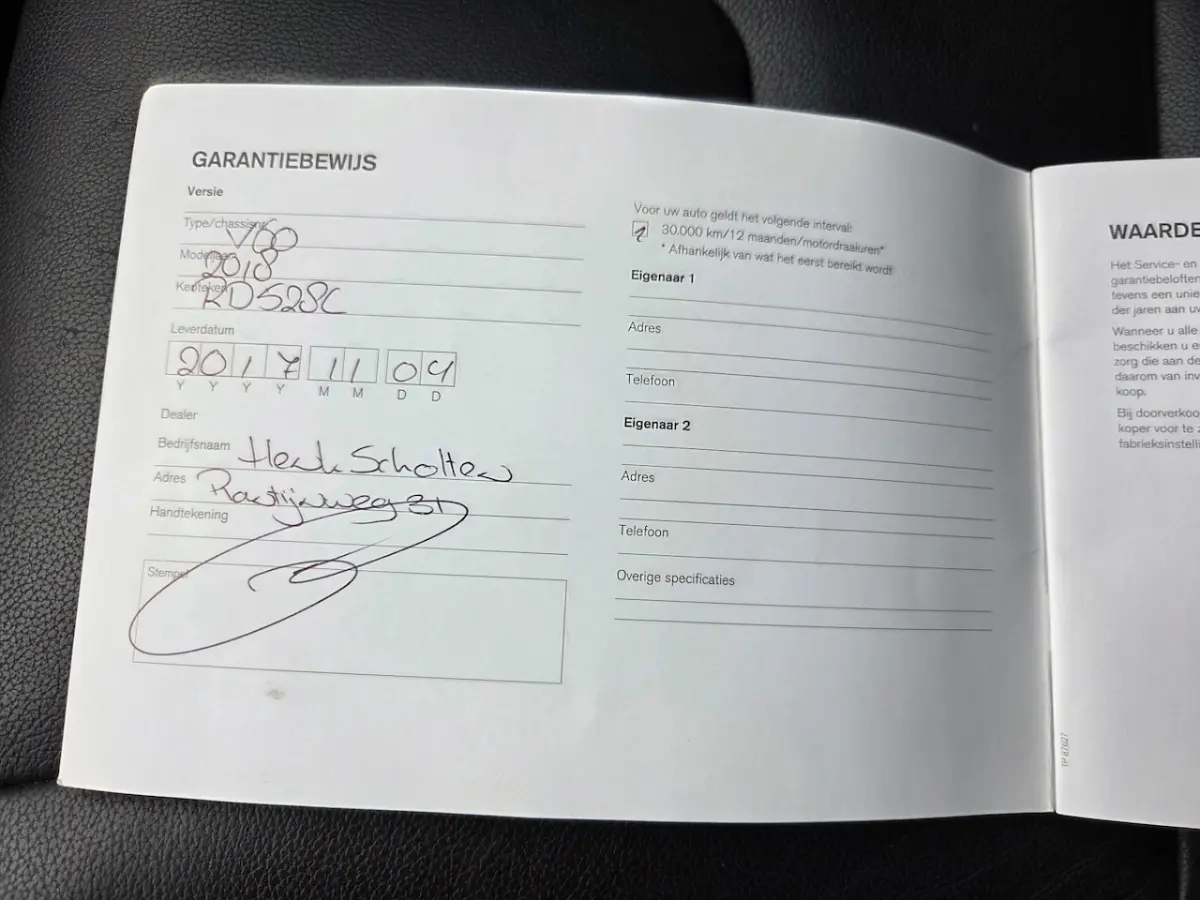 GARANTIEBEWIJS
Versie
Type/chassisnr. V60
Modeljaar 2018
Kenteken RD528C
Leverdatum
2017 11 04
Y Y Y Y M M D D
Dealer
Bedrijfsnaam Henk Scholten
Adres 31
Handtekening
Stempel
Voor uw auto geldt het volgende interval:
30.000 km/12 maanden/motordraaiuren*
* Afhankelijk van wat het eerst bereikt wordt
Eigenaar 1
Adres
Telefoon
Eigenaar 2
Adres
Telefoon
Overige specificaties
WAARDE
Het Service- en
garantiebeloften
tevens een unie
der jaren aan uw
Wanneer u alle
beschikken u e
zorg die aan de
daarom van inv
koop.
Bij doorverkoo
koper voor te
fabrieksinstelli
TP 87627